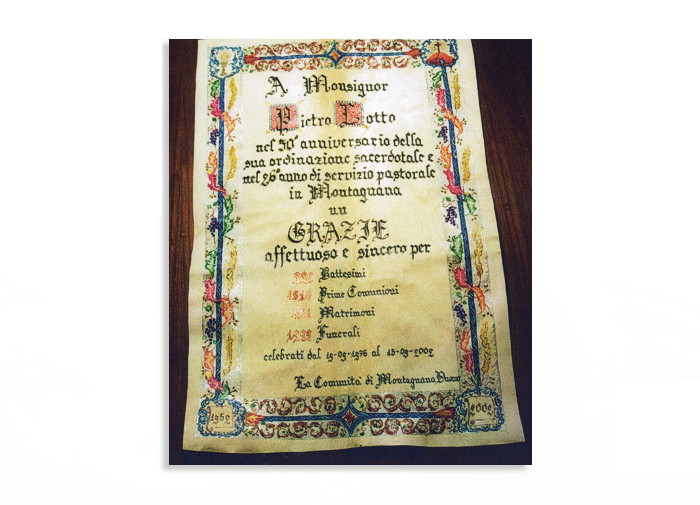 A Monsignor
Pietro Lotto
nel 50° anniversario della
sua ordinazione sacerdotale e
nel 26° anno di servizio pastorale
in Montagnana
un
GRAZIE
affettuoso e sincero per
Battesimi
Prime Comunioni
Matrimoni
Funerali
celebrati dal 19-09-1976 al 15-09-2002
La Comunità di Montagnana Duomo
1952
2002